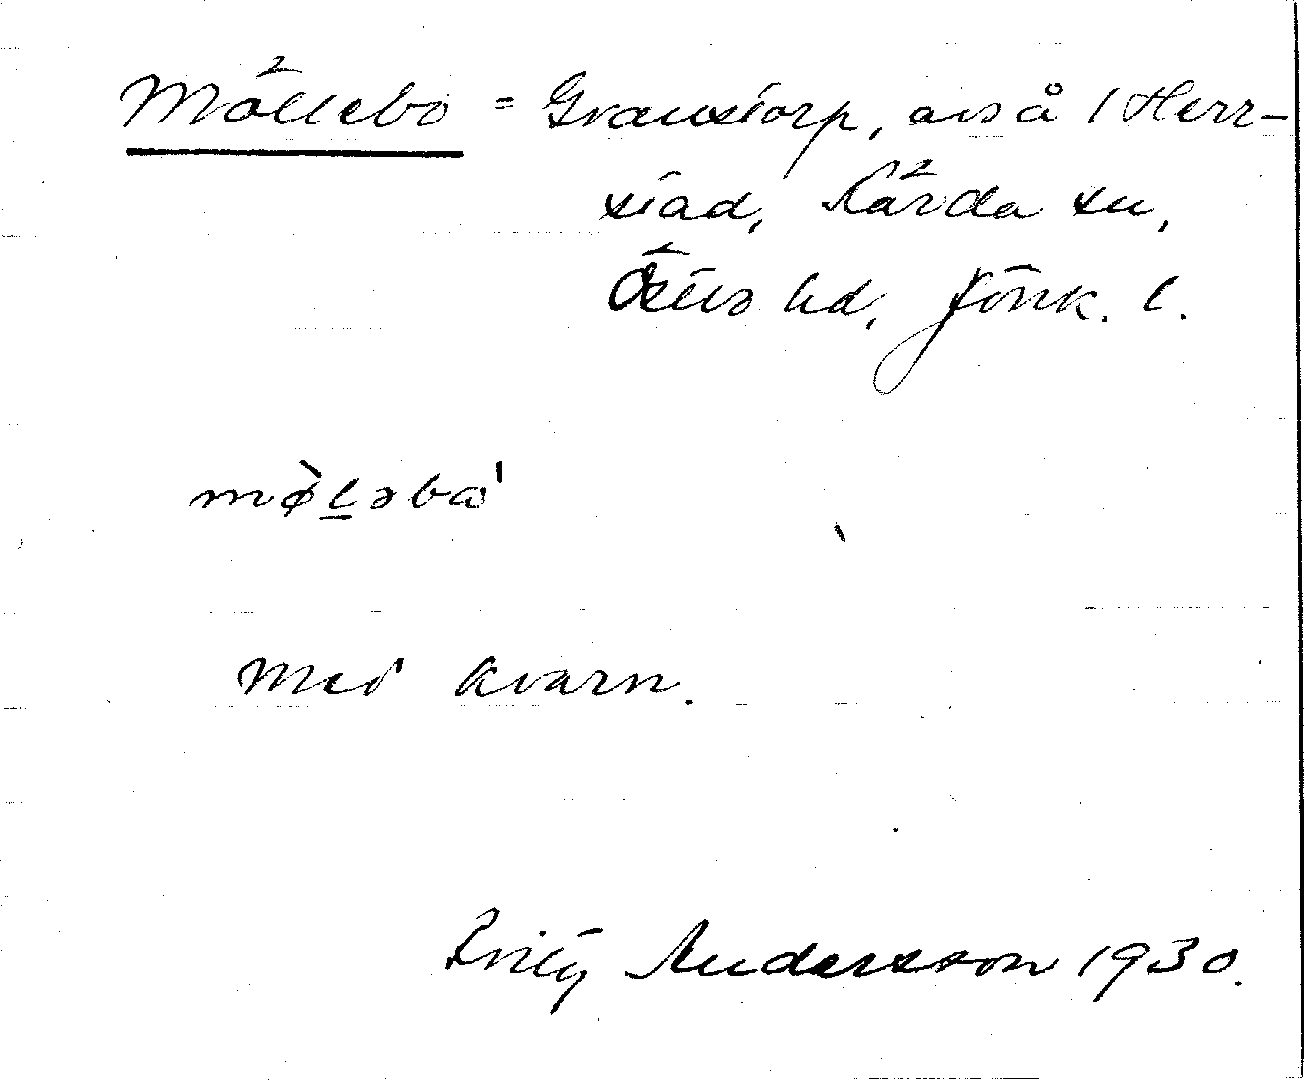 Möllebo = Granstorp, avs å 1 Herr-
stad, Kärda sn,
Östbo hd, Jönk. l.
mø̀l̲əbω'
Med kvarn.
Andersson 1930.